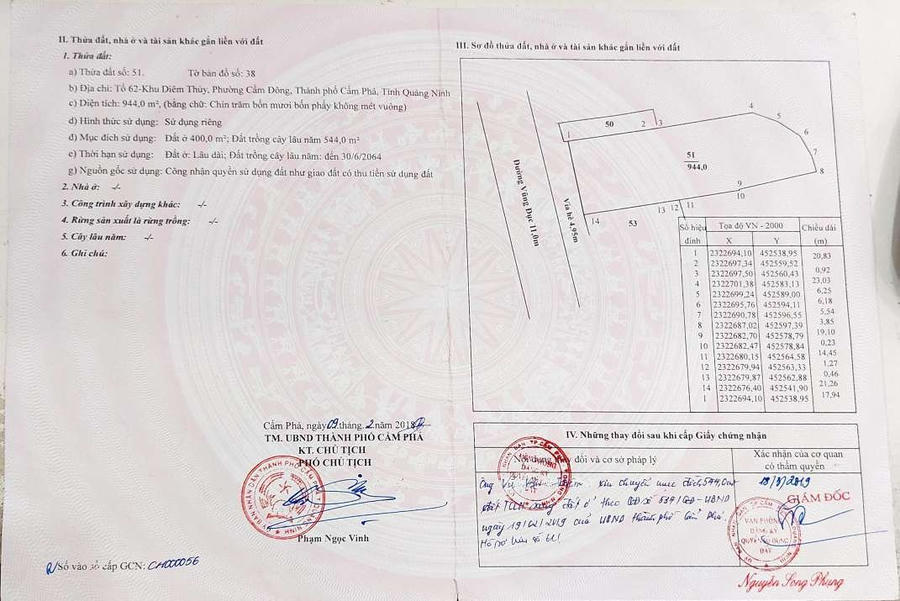 II. Thửa đất, nhà ở và tài sản khác gắn liền với đất
1. Thửa đất:
a) Thửa đất số: 51. Tờ bản đồ số: 38
b) Địa chỉ: Tổ 62-Khu Diêm Thủy, Phường Cẩm Đông, Thành phố Cẩm Phả, Tỉnh Quảng Ninh
c) Diện tích: 944,0 m², (bằng chữ: Chín trăm bốn mươi bốn phẩy không mét vuông)
d) Hình thức sử dụng: Sử dụng riêng
đ) Mục đích sử dụng: Đất ở 400,0 m²; Đất trồng cây lâu năm 544,0 m²
e) Thời hạn sử dụng: Đất ở: Lâu dài; Đất trồng cây lâu năm: đến 30/6/2064
g) Nguồn gốc sử dụng: Công nhận quyền sử dụng đất như giao đất có thu tiền sử dụng đất
2. Nhà ở: -/-
3. Công trình xây dựng khác: -/-
4. Rừng sản xuất là rừng trồng: -/-
5. Cây lâu năm: -/-
6. Ghi chú:
Cẩm Phả, ngày 09 tháng 2 năm 2018
TM. UBND THÀNH PHỐ CẨM PHẢ
KT. CHỦ TỊCH
PHÓ CHỦ TỊCH
Phạm Ngọc Vinh
Số vào sổ cấp GCN: CH000056
III. Sơ đồ thửa đất, nhà ở và tài sản khác gắn liền với đất
Đường Vũng Đục 11,0m
Vỉa hè 4,95m
50
51
944,0
53
1
2
3
4
5
6
7
8
9
10
11
12
13
14
Số hiệu đỉnh Tọa độ VN - 2000 Chiều dài
X Y (m)
1 2322694,10 452538,95
20,83
2 2322697,34 452559,52
0,92
3 2322697,50 452560,43
23,03
4 2322701,38 452583,13
6,25
5 2322699,24 452589,00
6,18
6 2322695,76 452594,11
5,54
7 2322690,78 452596,55
3,85
8 2322687,02 452597,39
19,10
9 2322682,70 452578,79
0,23
10 2322682,47 452578,84
14,45
11 2322680,15 452564,58
1,27
12 2322679,94 452563,33
0,46
13 2322679,87 452562,88
21,26
14 2322676,40 452541,90
17,94
1 2322694,10 452538,95
IV. Những thay đổi sau khi cấp Giấy chứng nhận
Nội dung thay đổi và cơ sở pháp lý
Xác nhận của cơ quan
có thẩm quyền
GIÁM ĐỐC
VĂN PHÒNG
ĐĂNG KÝ
QUYỀN SỬ DỤNG
ĐẤT
Nguyễn Song Phung